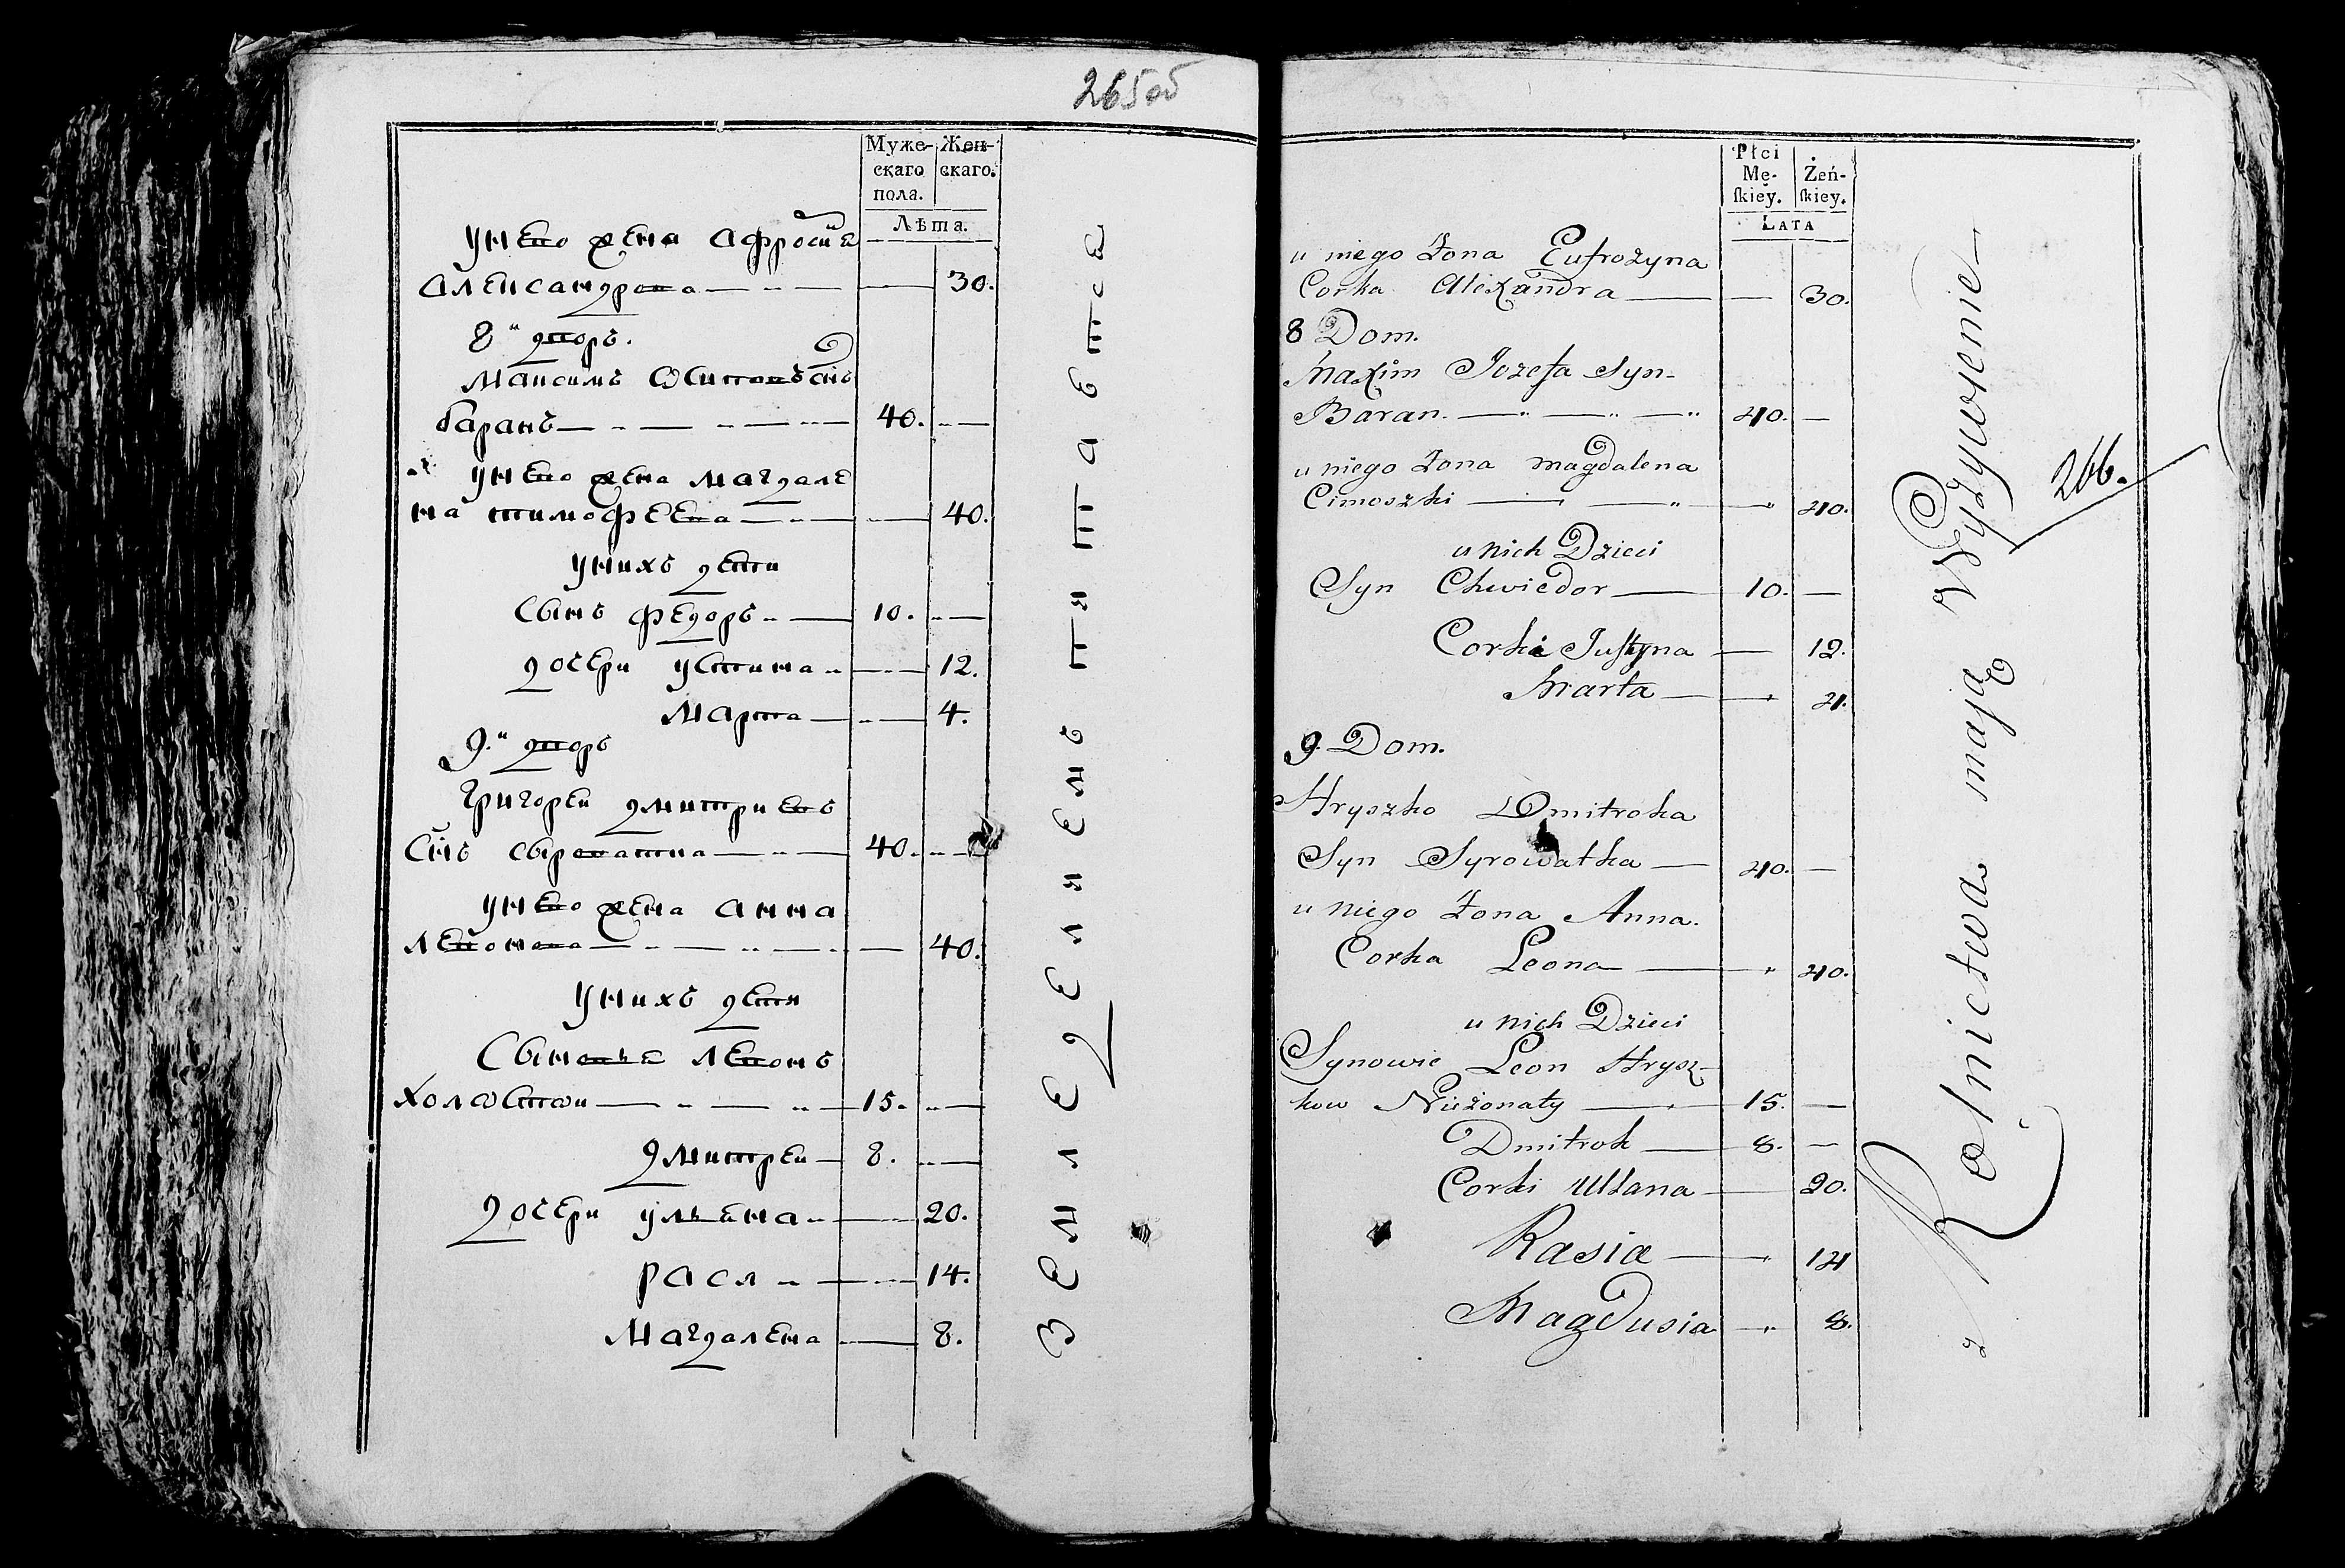 265об
Муже-
скаго
пола.
Жен-
скаго.
Лѣта.
унево жена Афросиа
Александрова 30.
8й дворъ.
Максимъ Осиповъ снъ
баранъ 40.
унево жена Магдале
на тимофеева 40.
унихъ дети
Сынъ федоръ 10.
дочери устина 12.
Марта 4.
9.й дворъ
григореи дмитриевъ
снъ сыроватка 40.
унево жена анна
левонова 40.
унихъ дети
Сыновья левонъ
холостои 15.
дмитреи 8.
дочери ульяна 20.
рася 14.
Магдалена 8.
Земледелиемъ питаетсе
Płci
Mę-
skiey.
Żeń-
skiey.
LATA
u niego Żona Eufrozyna
Corka Alexandra 30.
8 Dom.
Maxim Jozefa Syn
Baran. 40.
u niego Żona Magdalena
Cimoszki 40.
u nich Dzieci
Syn Chwiedor 10.
Corki Justyna 12.
Marta 4.
9. Dom.
Hryszko Dmitroka
Syn Syrowatka 40.
u niego Żona Anna.
Corka Leona 40.
u nich Dzieci
Synowie Leon Hrysz-
kow Nieżonaty 15.
Dmitrok 8.
Corki Ullana 20.
Rasia 14
Magdusia 8.
z Rolnictwa mają Wyżywienie
266.